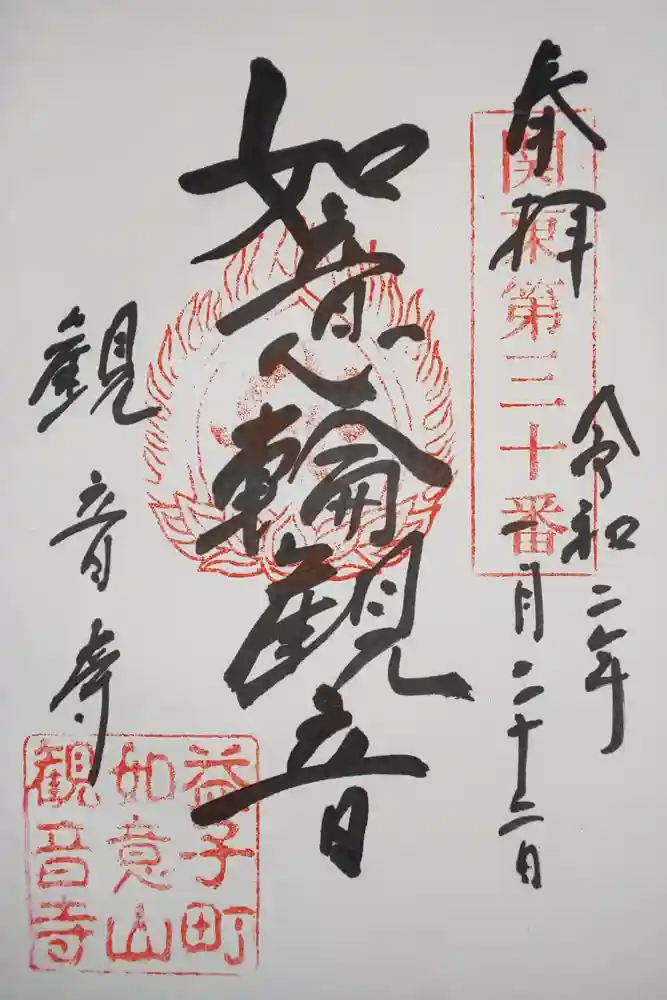 奉拝
関東第三十番
令和二年
一月二十二日
如意輪観音
観音寺
益子町
如意山
観音寺